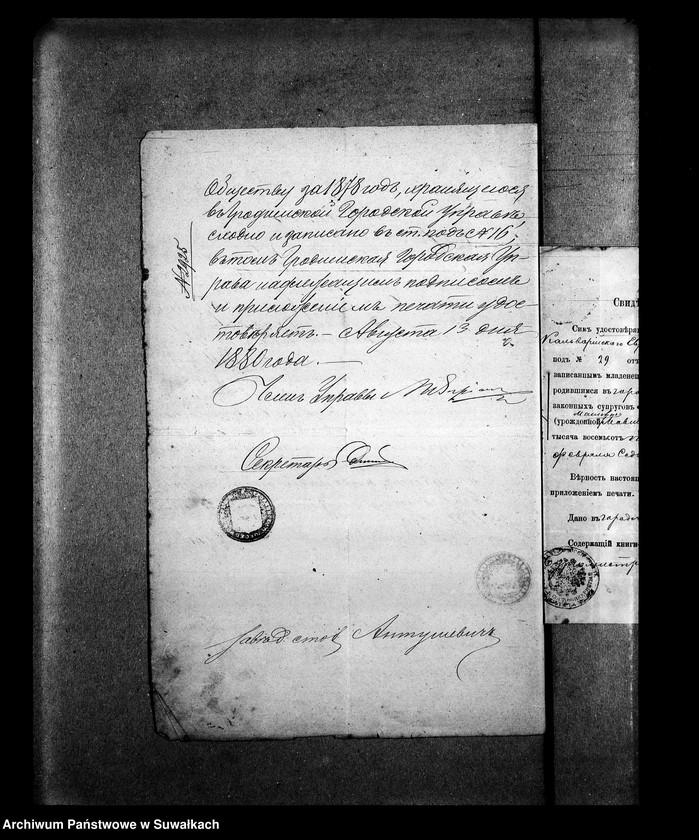 Обществу за 1878 годъ, хранящагося
въ Гродненской Городской Управѣ
сходно и записано въ ст. подъ № 16,
въ томъ Гродненская Городская Уп-
рава надлежащимъ подписомъ
и приложеніемъ печати удос-
товѣряетъ. – Августа 13 дня
1880 года.
Членъ Управы
Секретарь
Завѣд. стол Антушевичъ
№ 2925
Свидѣ
Симъ удостовѣря
Кальварійскаго
подъ № 29 от
записаннымъ младенец
родившимся въ горо
законныхъ супруговъ
(урожденной
тысяча восемьсот
февраля Сед
Вѣрность настоящ
приложеніемъ печати.
Дано въ город
Содержащій книги
Archiwum Państwowe w Suwałkach